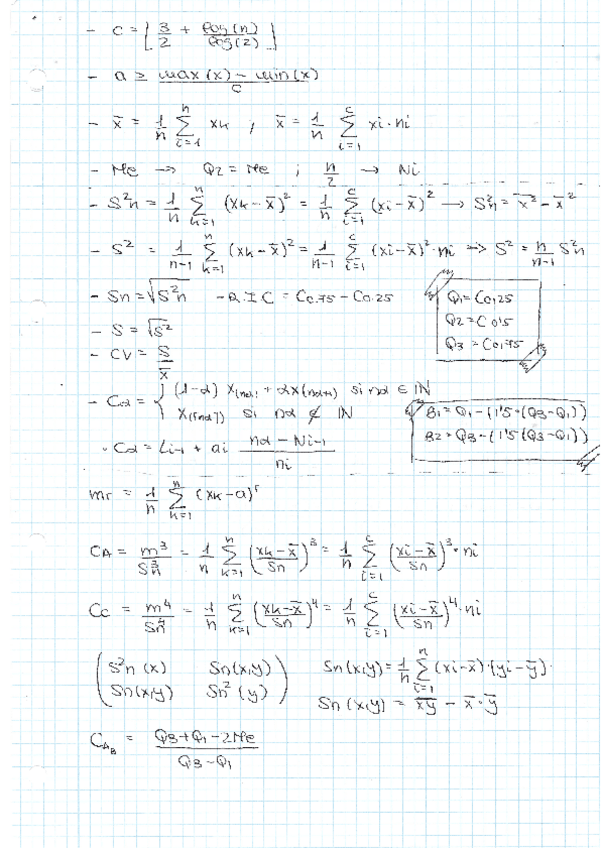 - c = [3/2 + log(n)/log(2)]
- a ≥ (max(x) - min(x))/c
- x̄ = 1/n Σ_{i=1}^{n} xk ; x̄ = 1/n Σ_{i=1}^{c} xi·ni
- Me → Q2 = Me ; n/2 → Ni
- S²n = 1/n Σ_{k=1}^{n} (xk - x̄)² = 1/n Σ_{i=1}^{c} (xi - x̄)² → S²n = x̄² - x̄²
- S² = 1/(n-1) Σ_{k=1}^{n} (xk - x̄)² = 1/(n-1) Σ_{i=1}^{c} (xi - x̄)²·ni → S² = n/(n-1) S²n
- Sn = √S²n - R.I.C = C0.75 - C0.25
Q1 = C0,25
Q2 = C0'5
Q3 = C0,75
- S = √S²
- CV = S/x̄
- Cα = { (1-α) X(nα) + αX(nα+1) si nα ∈ IN
X([nα]) si nα ∉ IN
B1 = Q1 - (1'5·(Q3-Q1))
B2 = Q3 - (1'5(Q3-Q1))
· Cα = Li-1 + ai (nα - Ni-1)/ni
mr = 1/n Σ_{k=1}^{n} (xk - a)^r
CA = m3/S³n = 1/n Σ_{k=1}^{n} ((xk - x̄)/Sn)³ = 1/n Σ_{i=1}^{c} ((xi - x̄)/Sn)³·ni
Cc = m4/Sn⁴ = 1/n Σ_{k=1}^{n} ((xk - x̄)/Sn)⁴ = 1/n Σ_{i=1}^{c} ((xi - x̄)/Sn)⁴·ni
(S²n (x) Sn(x,y) Sn(x,y) = 1/n Σ_{i=1}^{n} (xi - x̄)·(yi - ȳ)
Sn(x,y) Sn² (y)) Sn (x,y) = x̄ȳ - x̄·ȳ
C_{AB} = (Q3 + Q1 - 2Me)/(Q3 - Q1)